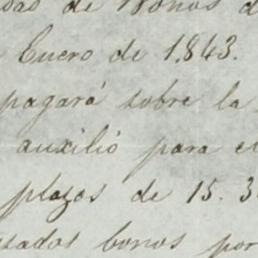 de Bonos d
Enero de 1.843.
pagará sobre la
auxilió para e
plazos de 15. 3
sados bonos por